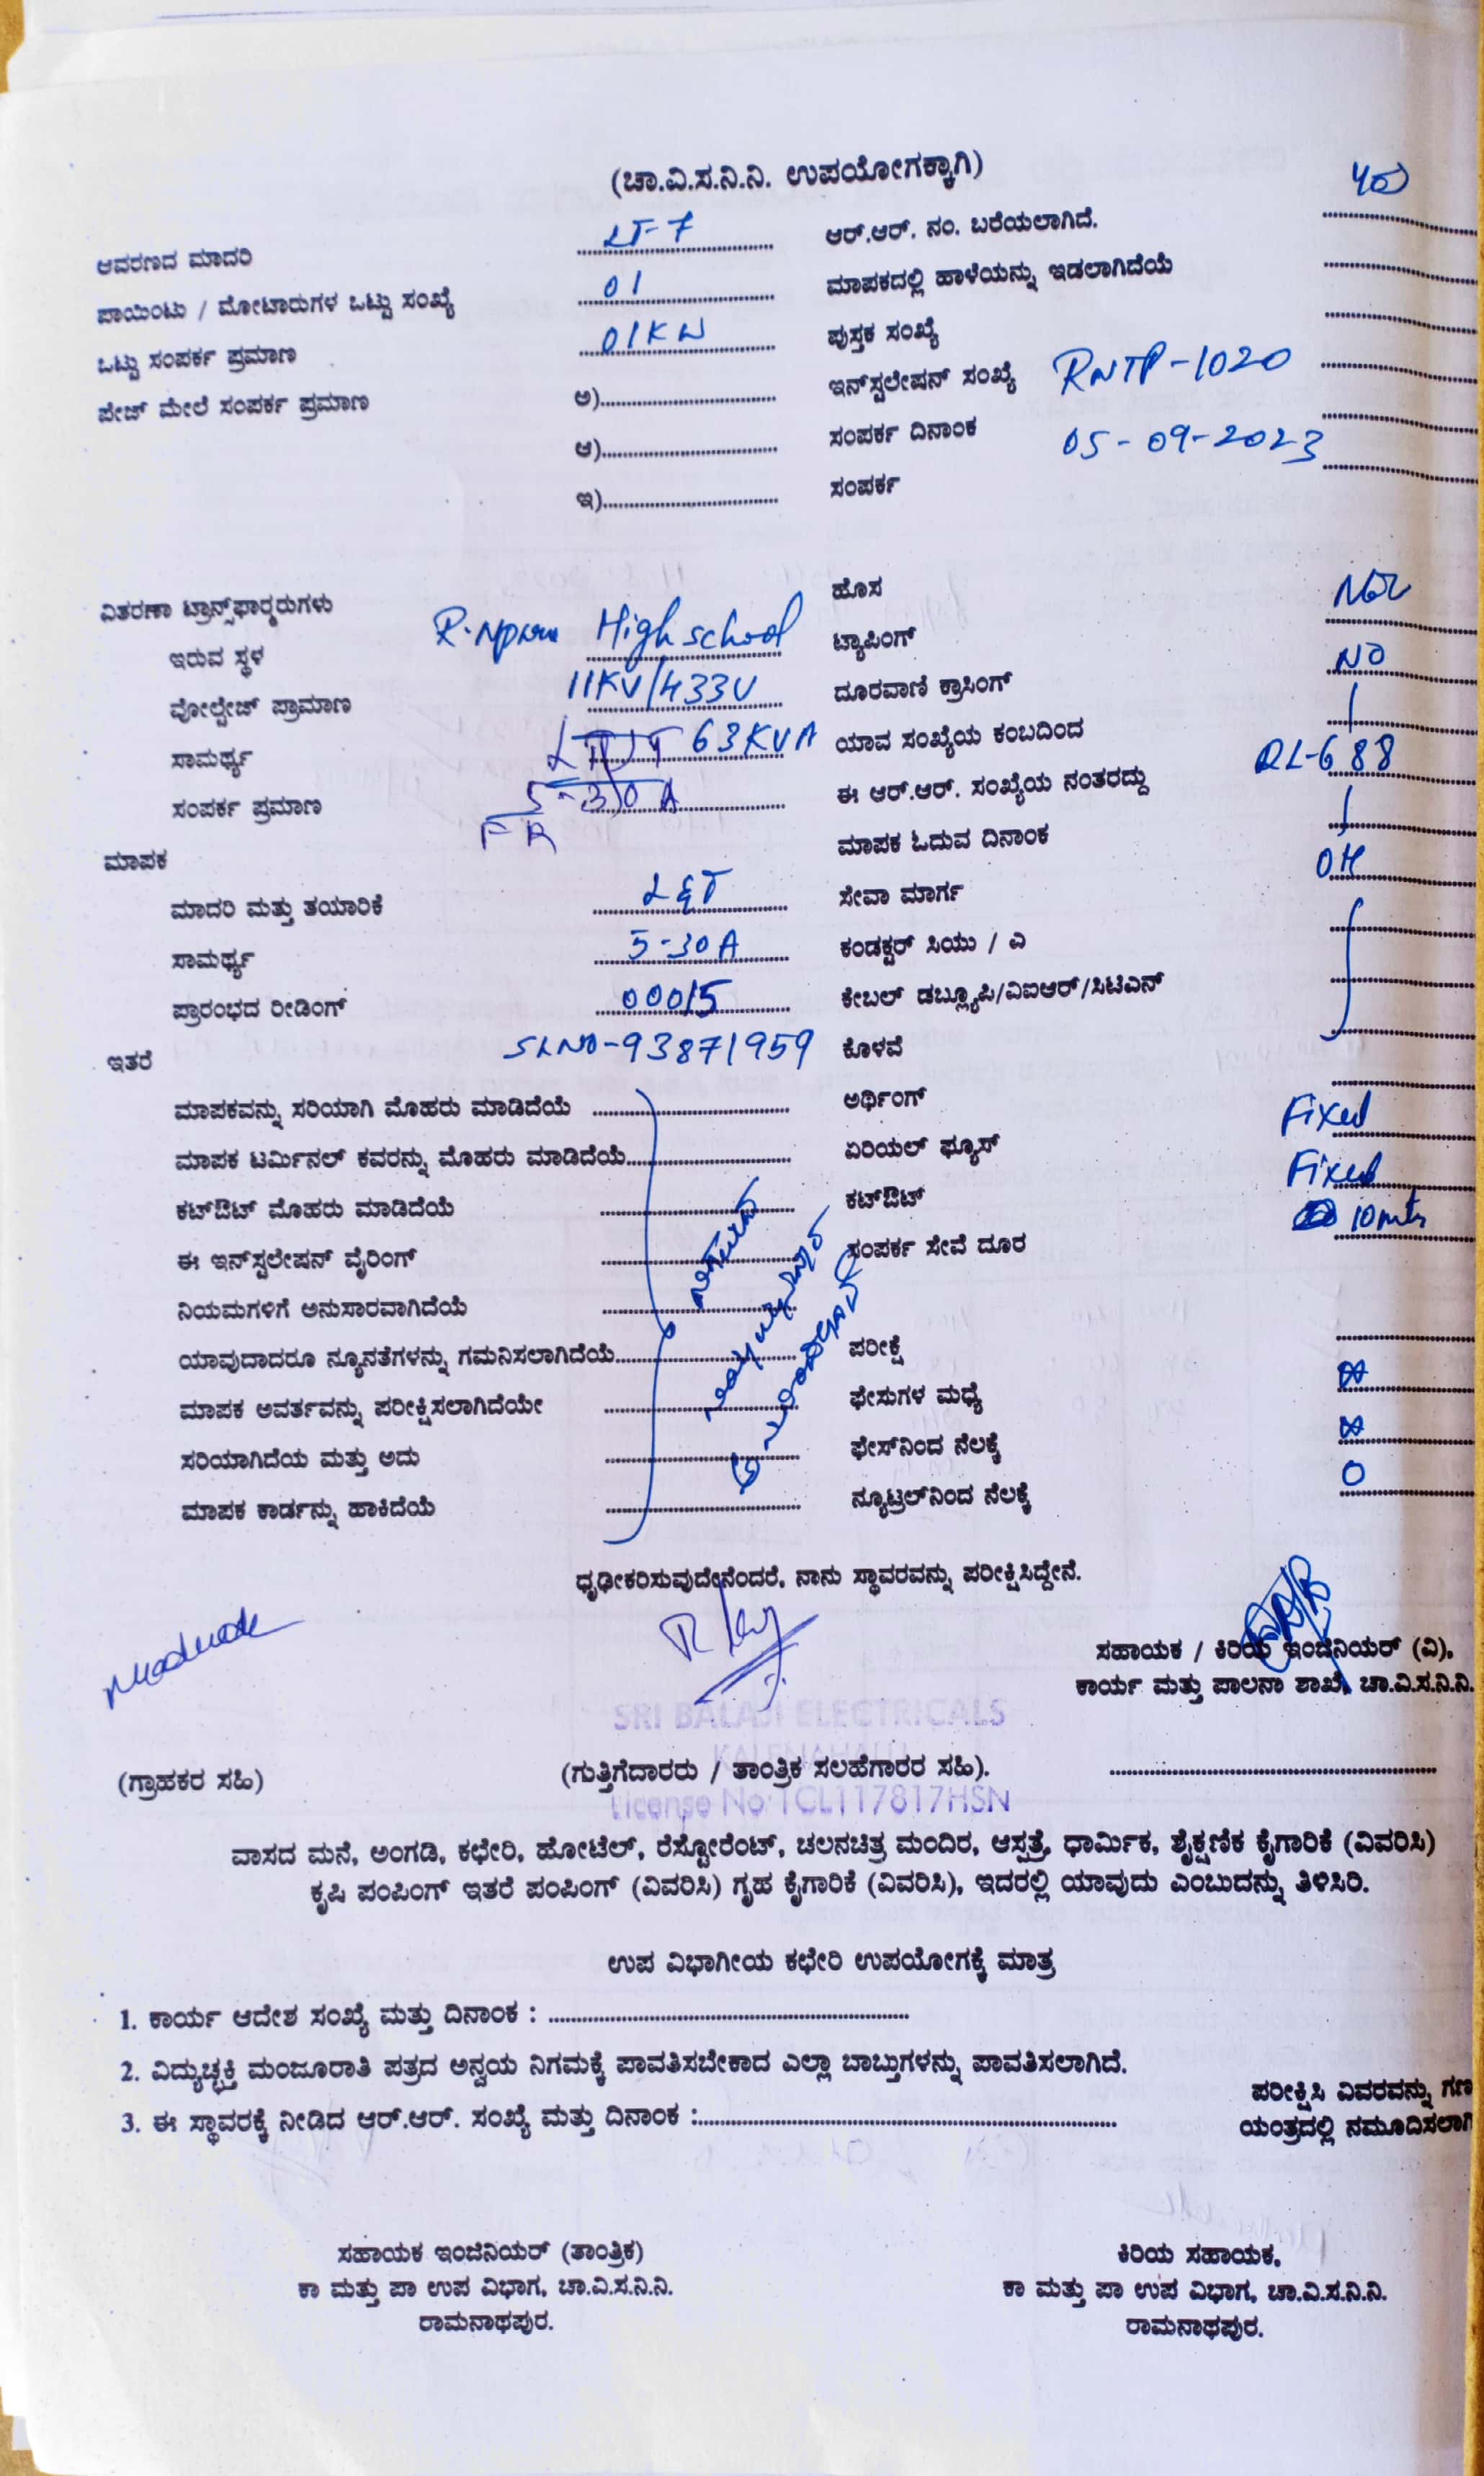 (ಚಾ.ವಿ.ಸ.ನಿ.ನಿ. ಉಪಯೋಗಕ್ಕಾಗಿ)
ಆವರಣದ ಮಾದರಿ LT-7 ಆರ್.ಆರ್. ನಂ. ಬರೆಯಲಾಗಿದೆ.
ಪಾಯಿಂಟು / ಮೋಟಾರುಗಳ ಒಟ್ಟು ಸಂಖ್ಯೆ 01 ಮಾಪಕದಲ್ಲಿ ಹಾಳೆಯನ್ನು ಇಡಲಾಗಿದೆಯೆ
ಒಟ್ಟು ಸಂಪರ್ಕ ಪ್ರಮಾಣ 01KW ಪುಸ್ತಕ ಸಂಖ್ಯೆ
ಪೇಜ್ ಮೇಲೆ ಸಂಪರ್ಕ ಪ್ರಮಾಣ ಅ) ಇನ್‌ಸ್ಟಲೇಷನ್ ಸಂಖ್ಯೆ RNTP-1020
ಆ) ಸಂಪರ್ಕ ದಿನಾಂಕ 05-09-2023
ಇ) ಸಂಪರ್ಕ
ವಿತರಣಾ ಟ್ರಾನ್ಸ್‌ಫಾರ್‍ಮರುಗಳು ಹೊಸ
ಇರುವ ಸ್ಥಳ High school ಟ್ಯಾಪಿಂಗ್
ವೋಲ್ಟೇಜ್ ಪ್ರಾಮಾಣ 11KV/433V ದೂರವಾಣಿ ಕ್ರಾಸಿಂಗ್ NO
ಸಾಮರ್ಥ್ಯ 63KVA ಯಾವ ಸಂಖ್ಯೆಯ ಕಂಬದಿಂದ
ಸಂಪರ್ಕ ಪ್ರಮಾಣ 5-30A ಈ ಆರ್.ಆರ್. ಸಂಖ್ಯೆಯ ನಂತರದ್ದು RL-688
ಮಾಪಕ ಮಾಪಕ ಓದುವ ದಿನಾಂಕ
ಮಾದರಿ ಮತ್ತು ತಯಾರಿಕೆ L&T ಸೇವಾ ಮಾರ್ಗ OH
ಸಾಮರ್ಥ್ಯ 5-30A ಕಂಡಕ್ಟರ್ ಸಿಯು / ಎ
ಪ್ರಾರಂಭದ ರೀಡಿಂಗ್ 00015 ಕೇಬಲ್ ಡಬ್ಲ್ಯೂಪಿ/ವಿಐಆರ್/ಸಿಟಿಎನ್
ಇತರೆ SLNO-93871959 ಕೊಳವೆ
ಮಾಪಕವನ್ನು ಸರಿಯಾಗಿ ಮೊಹರು ಮಾಡಿದೆಯೆ ಅರ್ಥಿಂಗ್
ಮಾಪಕ ಟರ್ಮಿನಲ್ ಕವರನ್ನು ಮೊಹರು ಮಾಡಿದೆಯೆ ಏರಿಯಲ್ ಫ್ಯೂಸ್ Fixed
ಕಟ್‌ಔಟ್ ಮೊಹರು ಮಾಡಿದೆಯೆ ಕಟ್‌ಔಟ್ Fixed
ಈ ಇನ್‌ಸ್ಟಲೇಷನ್ ವೈರಿಂಗ್ ಸಂಪರ್ಕ ಸೇವೆ ದೂರ 10mts
ನಿಯಮಗಳಿಗೆ ಅನುಸಾರವಾಗಿದೆಯೆ
ಯಾವುದಾದರೂ ನ್ಯೂನತೆಗಳನ್ನು ಗಮನಿಸಲಾಗಿದೆಯೆ ಪರೀಕ್ಷೆ
ಮಾಪಕ ಅವರ್ತವನ್ನು ಪರೀಕ್ಷಿಸಲಾಗಿದೆಯೇ ಫೇಸುಗಳ ಮಧ್ಯೆ
ಸರಿಯಾಗಿದೆಯ ಮತ್ತು ಅದು ಫೇಸ್‌ನಿಂದ ನೆಲಕ್ಕೆ
ಮಾಪಕ ಕಾರ್ಡನ್ನು ಹಾಕಿದೆಯೆ ನ್ಯೂಟ್ರಲ್‌ನಿಂದ ನೆಲಕ್ಕೆ 0
ಧೃಢೀಕರಿಸುವುದೇನೆಂದರೆ, ನಾನು ಸ್ಥಾವರವನ್ನು ಪರೀಕ್ಷಿಸಿದ್ದೇನೆ.
ಸಹಾಯಕ / ಕಿರಿಯ ಇಂಜಿನಿಯರ್ (ವಿ),
ಕಾರ್ಯ ಮತ್ತು ಪಾಲನಾ ಶಾಖೆ, ಚಾ.ವಿ.ಸ.ನಿ.ನಿ.
SRI BALAJI ELECTRICALS
(ಗ್ರಾಹಕರ ಸಹಿ) (ಗುತ್ತಿಗೆದಾರರು / ತಾಂತ್ರಿಕ ಸಲಹೆಗಾರರ ಸಹಿ).
License No:1CL117817HSN
ವಾಸದ ಮನೆ, ಅಂಗಡಿ, ಕಛೇರಿ, ಹೋಟೆಲ್, ರೆಸ್ಟೋರೆಂಟ್, ಚಲನಚಿತ್ರ ಮಂದಿರ, ಆಸ್ಪತ್ರೆ, ಧಾರ್ಮಿಕ, ಶೈಕ್ಷಣಿಕ ಕೈಗಾರಿಕೆ (ವಿವರಿಸಿ)
ಕೃಷಿ ಪಂಪಿಂಗ್ ಇತರೆ ಪಂಪಿಂಗ್ (ವಿವರಿಸಿ) ಗೃಹ ಕೈಗಾರಿಕೆ (ವಿವರಿಸಿ), ಇದರಲ್ಲಿ ಯಾವುದು ಎಂಬುದನ್ನು ತಿಳಿಸಿರಿ.
ಉಪ ವಿಭಾಗೀಯ ಕಛೇರಿ ಉಪಯೋಗಕ್ಕೆ ಮಾತ್ರ
1. ಕಾರ್ಯ ಆದೇಶ ಸಂಖ್ಯೆ ಮತ್ತು ದಿನಾಂಕ :
2. ವಿದ್ಯುಚ್ಛಕ್ತಿ ಮಂಜೂರಾತಿ ಪತ್ರದ ಅನ್ವಯ ನಿಗಮಕ್ಕೆ ಪಾವತಿಸಬೇಕಾದ ಎಲ್ಲಾ ಬಾಬ್ತುಗಳನ್ನು ಪಾವತಿಸಲಾಗಿದೆ.
ಪರೀಕ್ಷಿಸಿ ವಿವರವನ್ನು ಗಣ
3. ಈ ಸ್ಥಾವರಕ್ಕೆ ನೀಡಿದ ಆರ್.ಆರ್. ಸಂಖ್ಯೆ ಮತ್ತು ದಿನಾಂಕ :
ಯಂತ್ರದಲ್ಲಿ ನಮೂದಿಸಲಾಗಿ
ಸಹಾಯಕ ಇಂಜಿನಿಯರ್ (ತಾಂತ್ರಿಕ) ಕಿರಿಯ ಸಹಾಯಕ,
ಕಾ ಮತ್ತು ಪಾ ಉಪ ವಿಭಾಗ, ಚಾ.ವಿ.ಸ.ನಿ.ನಿ. ಕಾ ಮತ್ತು ಪಾ ಉಪ ವಿಭಾಗ, ಚಾ.ವಿ.ಸ.ನಿ.ನಿ.
ರಾಮನಾಥಪುರ. ರಾಮನಾಥಪುರ.